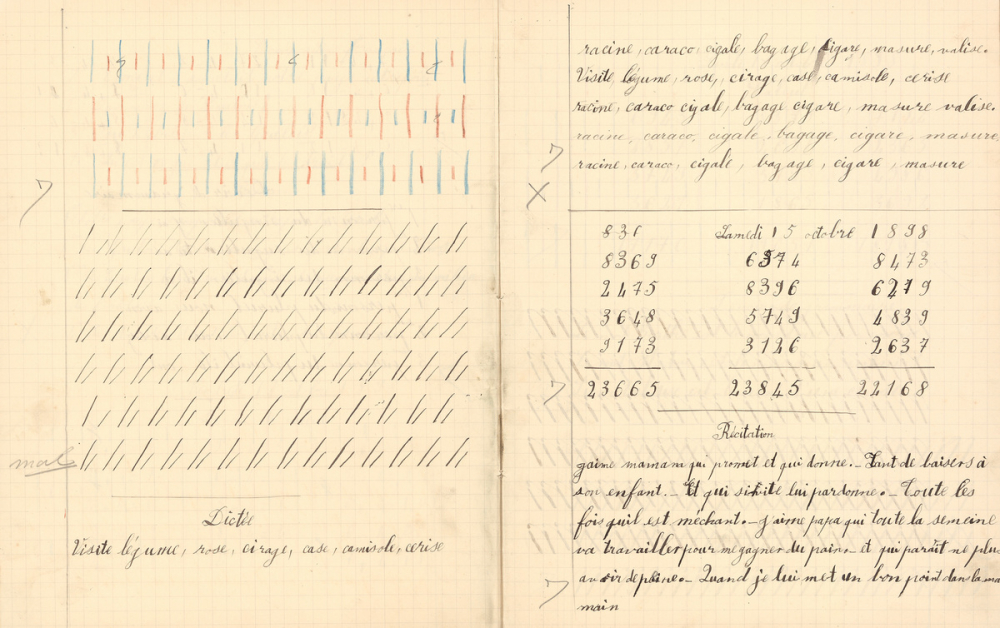 7
mal
Dictée
Visite légume, rose, cirage, case, camisole, cerise
racine, caraco, cigale, bagage, cigare, masure, valise.
Visite légume, rose, cirage, case, camisole, cerise
racine, caraco cigale, bagage cigare, masure valise.
racine, caraco, cigale, bagage, cigare, masure,
7 racine, caraco, cigale, bagage, cigare, masure
X
836 Samedi 15 octobre 1898
8369 6574 8473
2475 8396 6219
3648 5749 4839
9173 3126 2637
7 23665 23845 22168
Récitation
gaime mamam qui promet et qui donne. _ Tant de baisers à
son enfant. _ Et qui si vite lui pardonne. _ Toute les
fois quil est méchant. _ J'aime papa qui toute la semeine
va travailler pour me gagner du pain _ et qui paraît ne plus
7 avoir de peine. _ Quand je lui met un bon point dans la ma
main